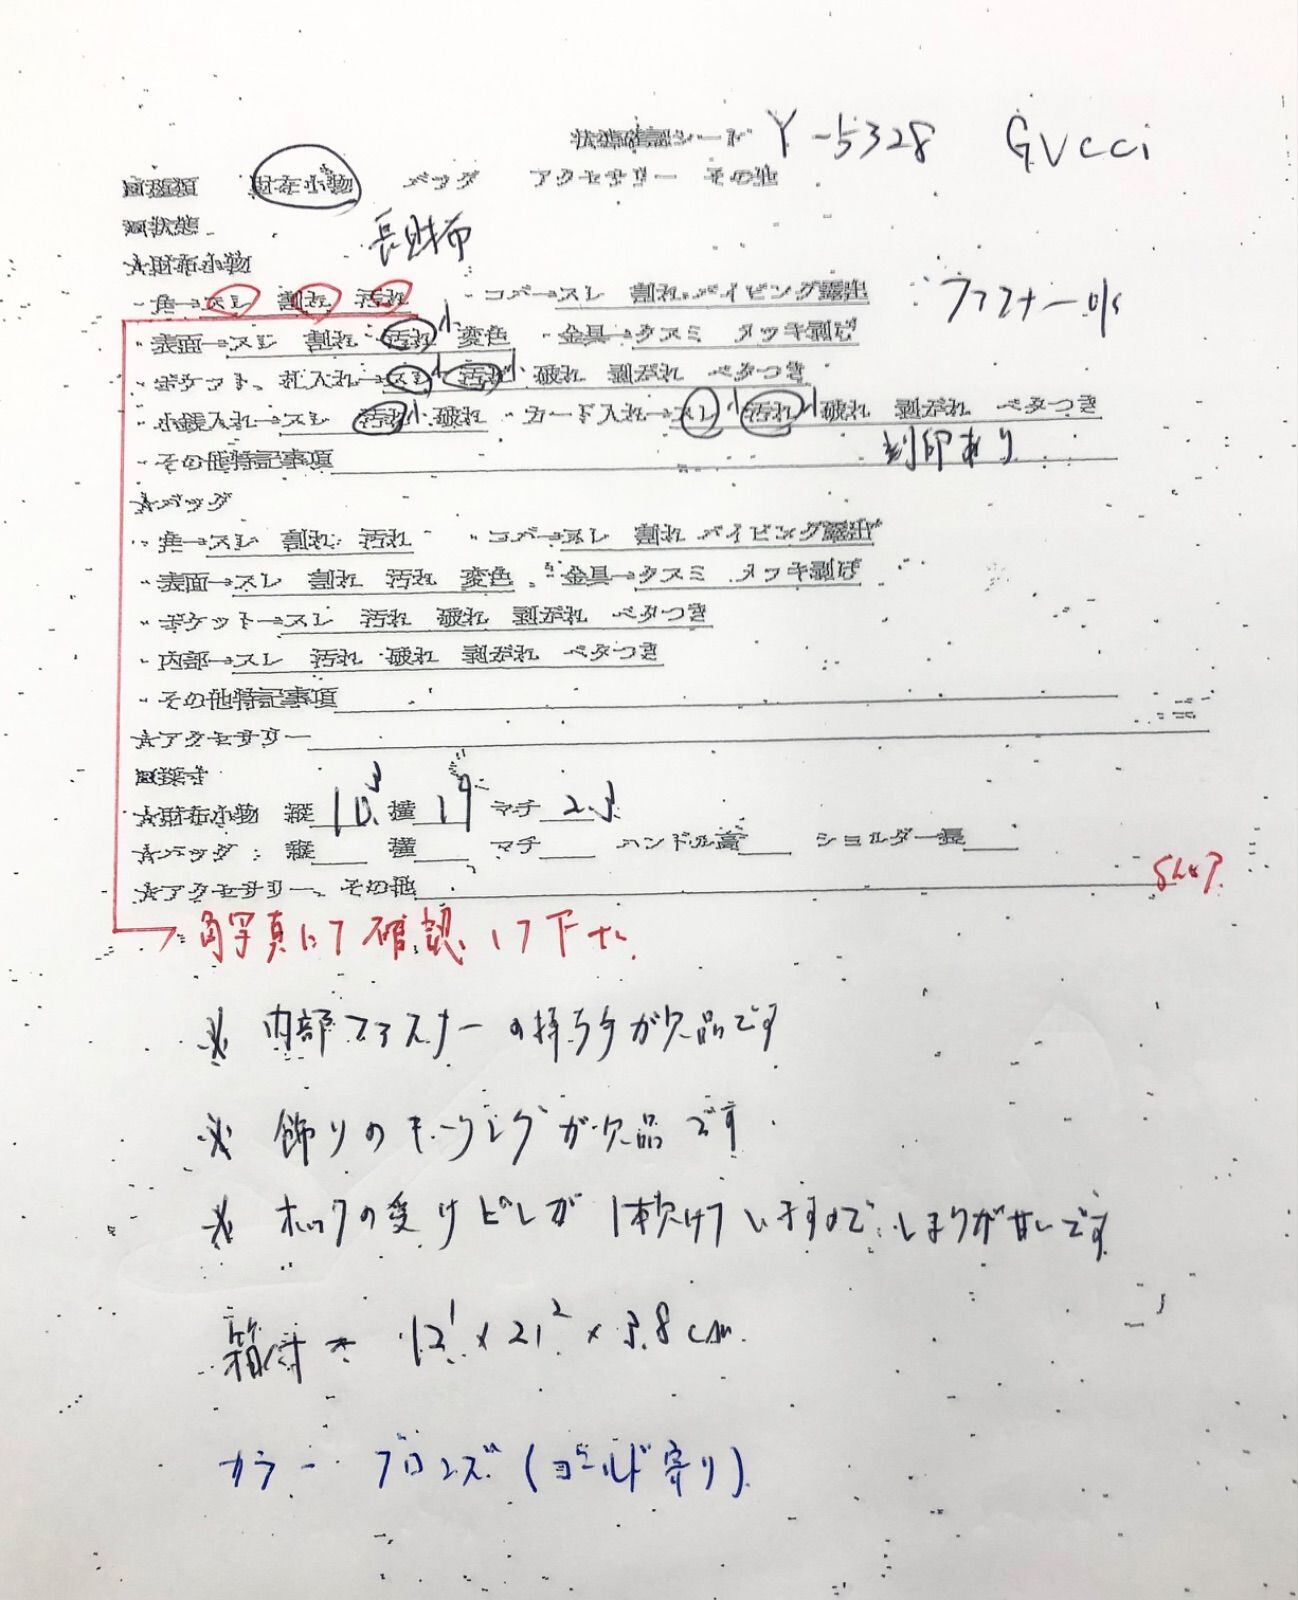 状態確認シート Y-5328 GUCCI
■種類 財布小物 バッグ アクセサリー その他
■状態 長財布
★財布小物
・角→スレ 割れ 汚れ ・コバ→スレ 割れ パイピング露出 ファスナー
・表面→スレ 割れ 汚れ小 変色 ・金具→クスミ メッキ剥げ
・ポケット、札入れ→スレ小 汚れ小 破れ 剥がれ ベタつき
・小銭入れ→スレ 汚れ小 破れ ・カード入れ→スレ小 汚れ小 破れ 剥がれ ベタつき
・その他特記事項 刻印あり
★バッグ
・角→スレ 割れ 汚れ ・コバ→スレ 割れ パイピング露出
・表面→スレ 割れ 汚れ 変色 ・金具→クスミ メッキ剥げ
・ポケット→スレ 汚れ 破れ 剥がれ ベタつき
・内部→スレ 汚れ 破れ 剥がれ ベタつき
・その他特記事項
★アクセサリー
■採寸
★財布小物 縦 10.3 横 19 マチ 2.3
★バッグ:縦 横 マチ ハンドル高 ショルダー長
★アクセサリー、その他
→角写真にて確認して下さい
※ 内部ファスナーの持ち手が欠品です
※ 飾りのキーリングが欠品です
※ ホックの受けビレが1本欠けていますので、しまりが甘いです
箱付き 12.1 × 21.2 × 3.8cm
カラー ブロンズ(ゴールド寄り)